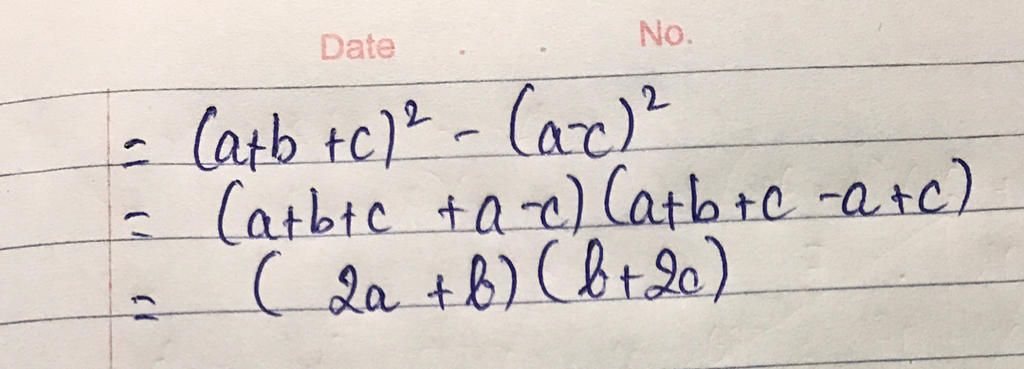 Date . . No.
= (a+b+c)² - (a-c)²
= (a+b+c +a-c) (a+b+c -a+c)
= (2a+b) (b+2c)